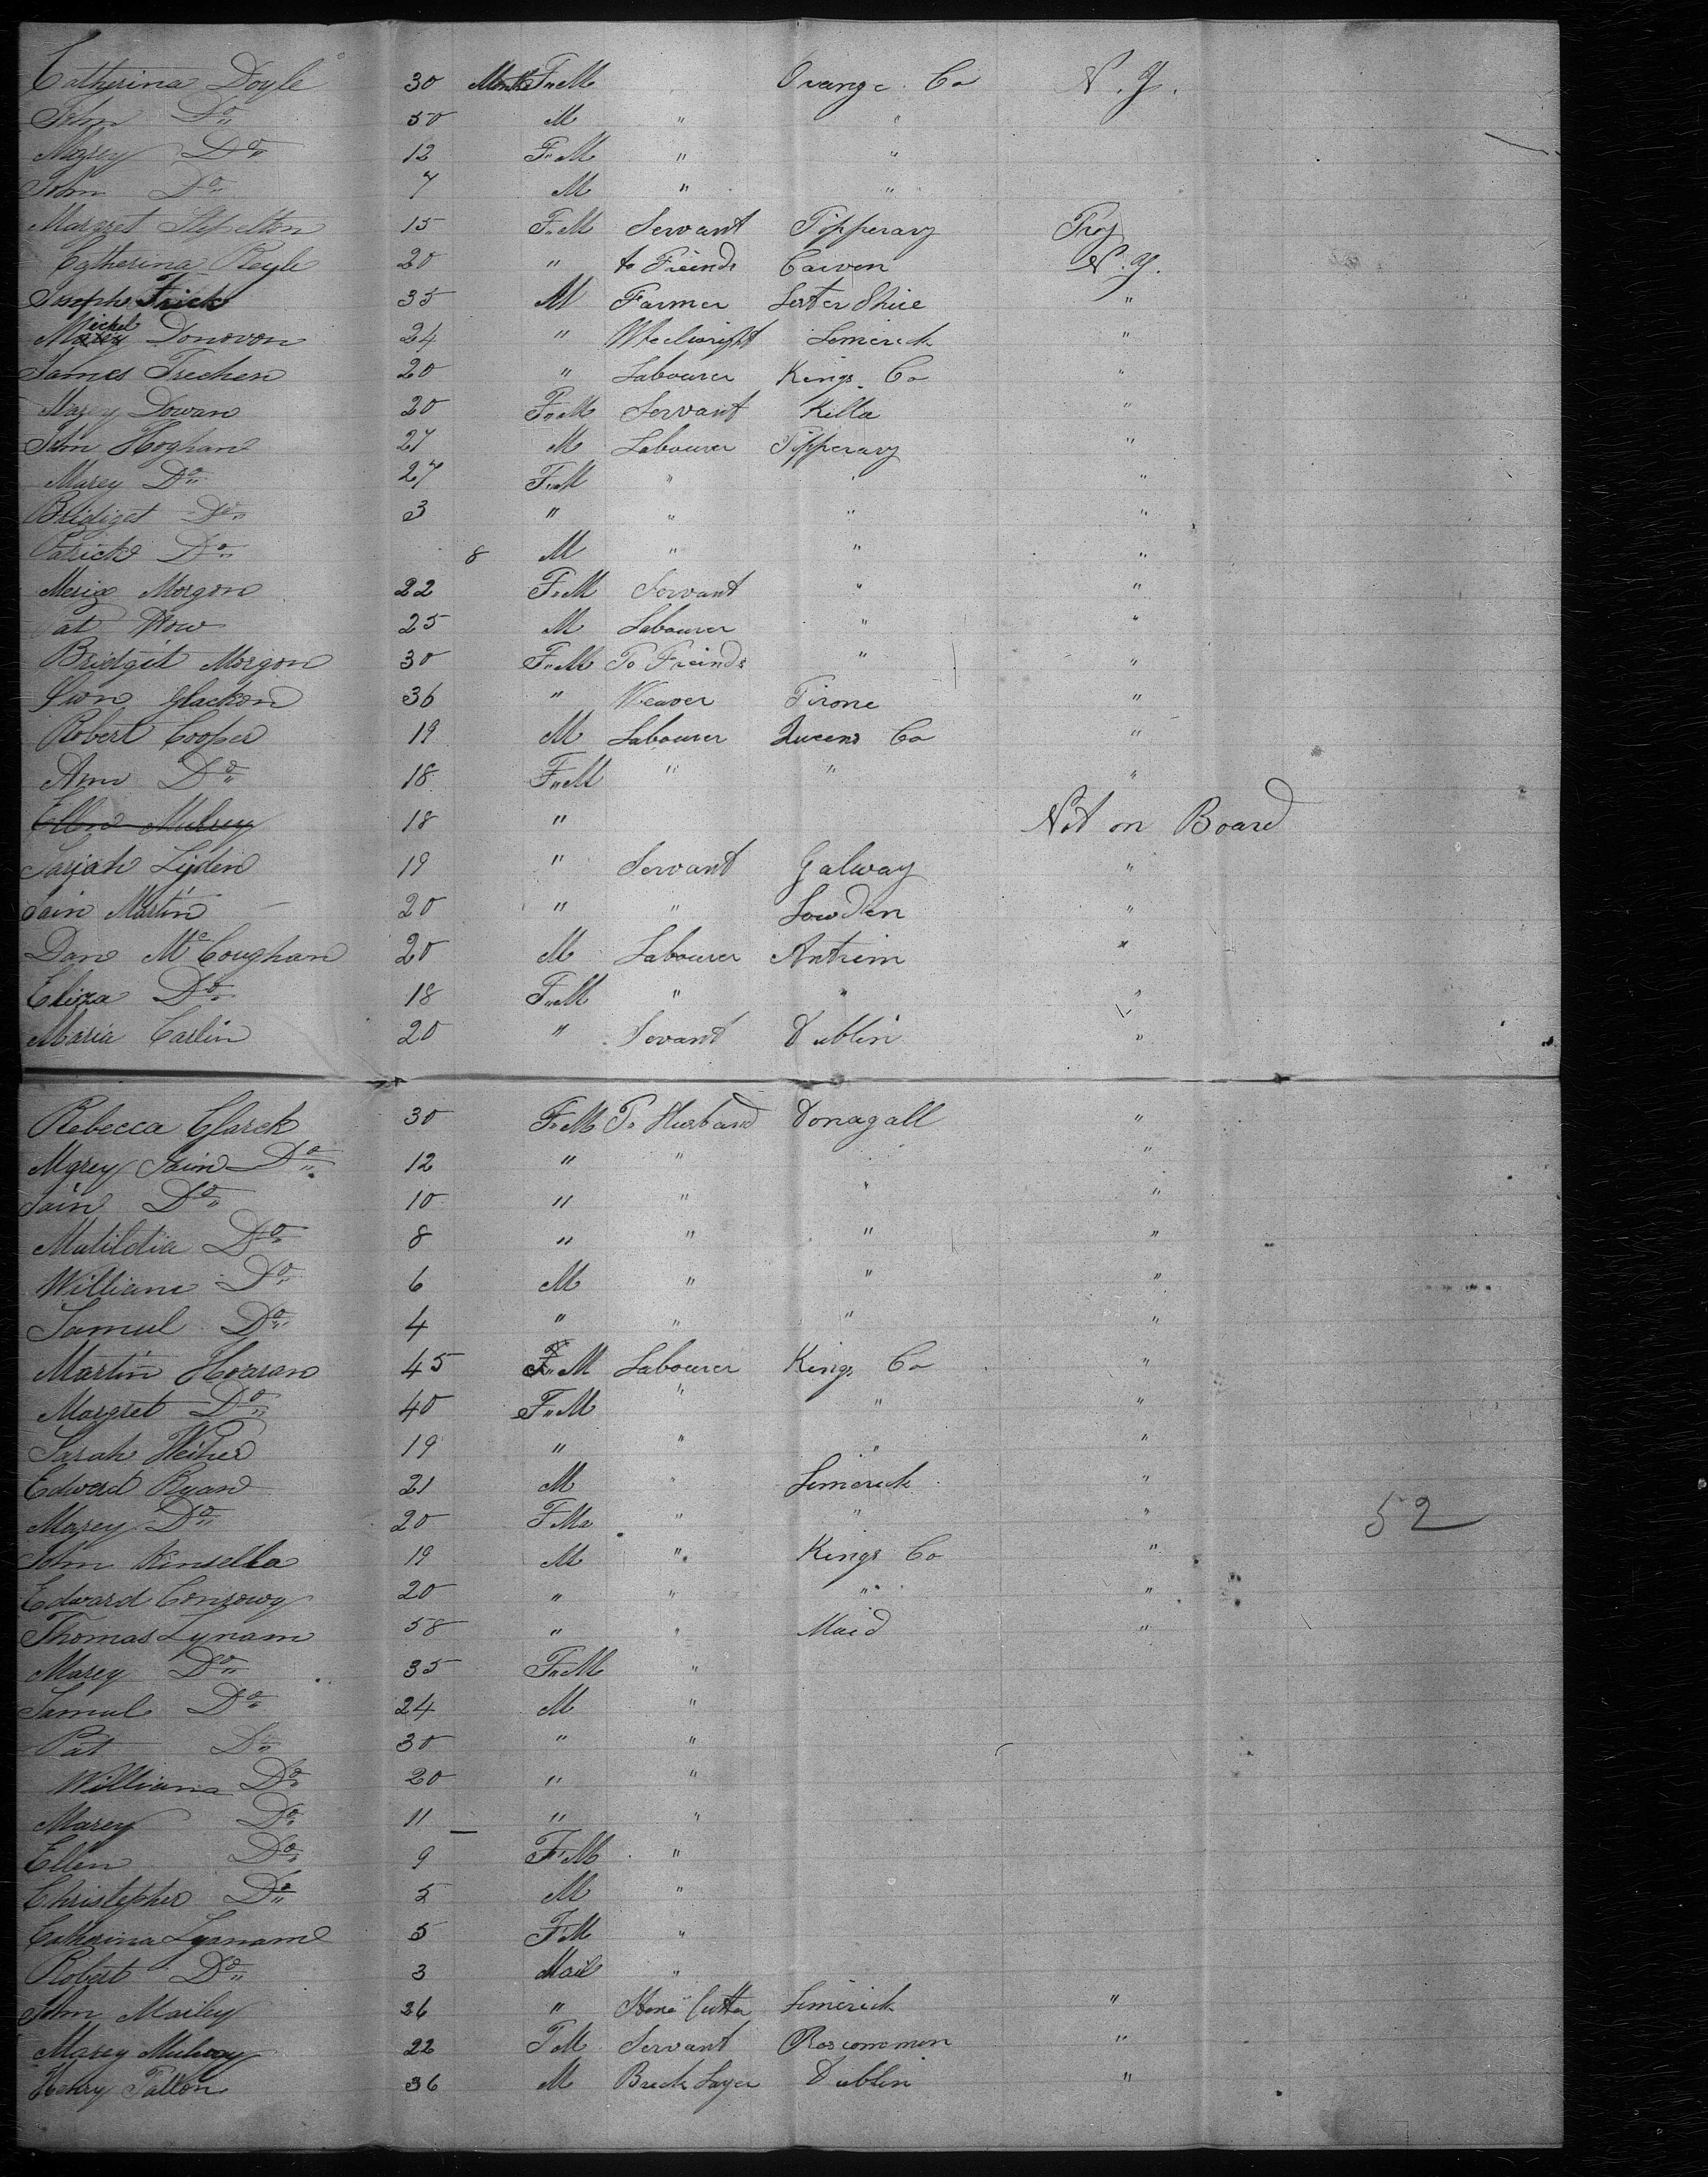 Catherina Doyle 30 Months F"M " Orange Co N. Y.
John Do 50 M " "
Marey Do 12 F"M " "
John Do 7 M " "
Margret Stepelton 15 F"M Servant Tipperary Troy
Catherina Reyle 20 " to Freinds Carven N. Y.
Joseph Frick 35 M Farmer Lester Shire "
Michel Donovon 24 " Wheelwright Limerick "
James Trechen 20 " Labourer Kings Co "
Marey Dowan 20 F"M Servant Killa "
John Hoghan 27 M Labourer Tipperary "
Marey Do 27 F"M " " "
Bridiget Do 3 " " " "
Patrick Do 8 M " " "
Meria Morgon 22 F"M Servant " "
Pat Dow 25 M Labourer " "
Bridgit Morgon 30 F"M To Freinds " "
Glackon 36 " Weaver Tirone "
Robert Cooper 19 M Labourer Queens Co "
Ann Do 18 F"M " " "
Ellen Mulrey 18 " Not on Board
Sarjah Liden 19 " Servant Galway "
Jain Martin 20 " " Lowden "
Dan McCoughan 20 M Labourer Antrim "
Eliza Do 18 F"M " " "
Maria Carlin 20 " Sevant Dublin "
Rebecca Clarck 30 F"M To Husband Donagall "
Marey Jain Do 12 " " "
Jain Do 10 " " " "
Matildia Do 8 " " " "
William Do 6 M " " "
Samul Do 4 " " " "
Martin Horran 45 M Labourer Kings Co "
Margret Do 40 F"M " " "
Sarah 19 " " " "
Edward Ryan 21 M " Limerick "
Marey Do 20 F Ma " " " 52
John Kinsella 19 M " Kings Co "
Edward Conrowy 20 " " " "
Thomas Lynam 58 " " Maid "
Marey Do 35 F"M "
Samul Do 24 M "
Pat Do 30 " "
William Do 20 " "
Marey Do 11 " "
Ellen Do 9 F"M "
Christepher Do 5 M "
Catherina Lyanam 5 F"M "
Robert Do 3 Mail "
John Mailey 26 " Stone Cutter Limerick "
Marey Mulvay 22 F M Servant Roscommon "
Henry Fallon 36 M Brick Layer Dublin "